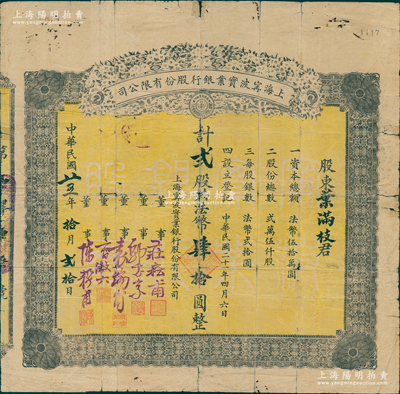 上海陽明拍賣
www.yangmingauction.com
1417
上海寗波實業銀行股份有限公司
股東葉滿枝君
一資本總額 法幣伍拾萬圓
二股份總數 弍萬伍仟股
三每股銀數 法幣弍拾圓
四設立登記 中華民國二十二年四月六日
計貳股法幣肆拾圓整
上海寗波實業銀行股份有限公司
董事
董事
董事
董事
董事
中華民國廿五年拾月弍拾日
上海陽明拍賣
www.yangmingauction.com